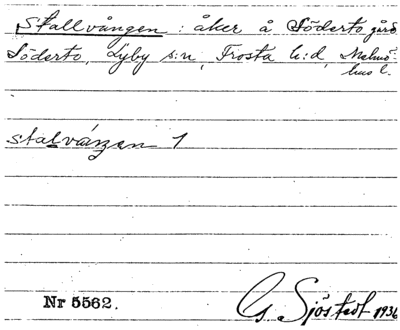 Stallvången : åker å Söderto gård
Söderto, Lyby s:n, Frosta h:d, Malmö-
hus l.
stalváŋen 1
Nr 5562.
G. Sjöstedt 1936